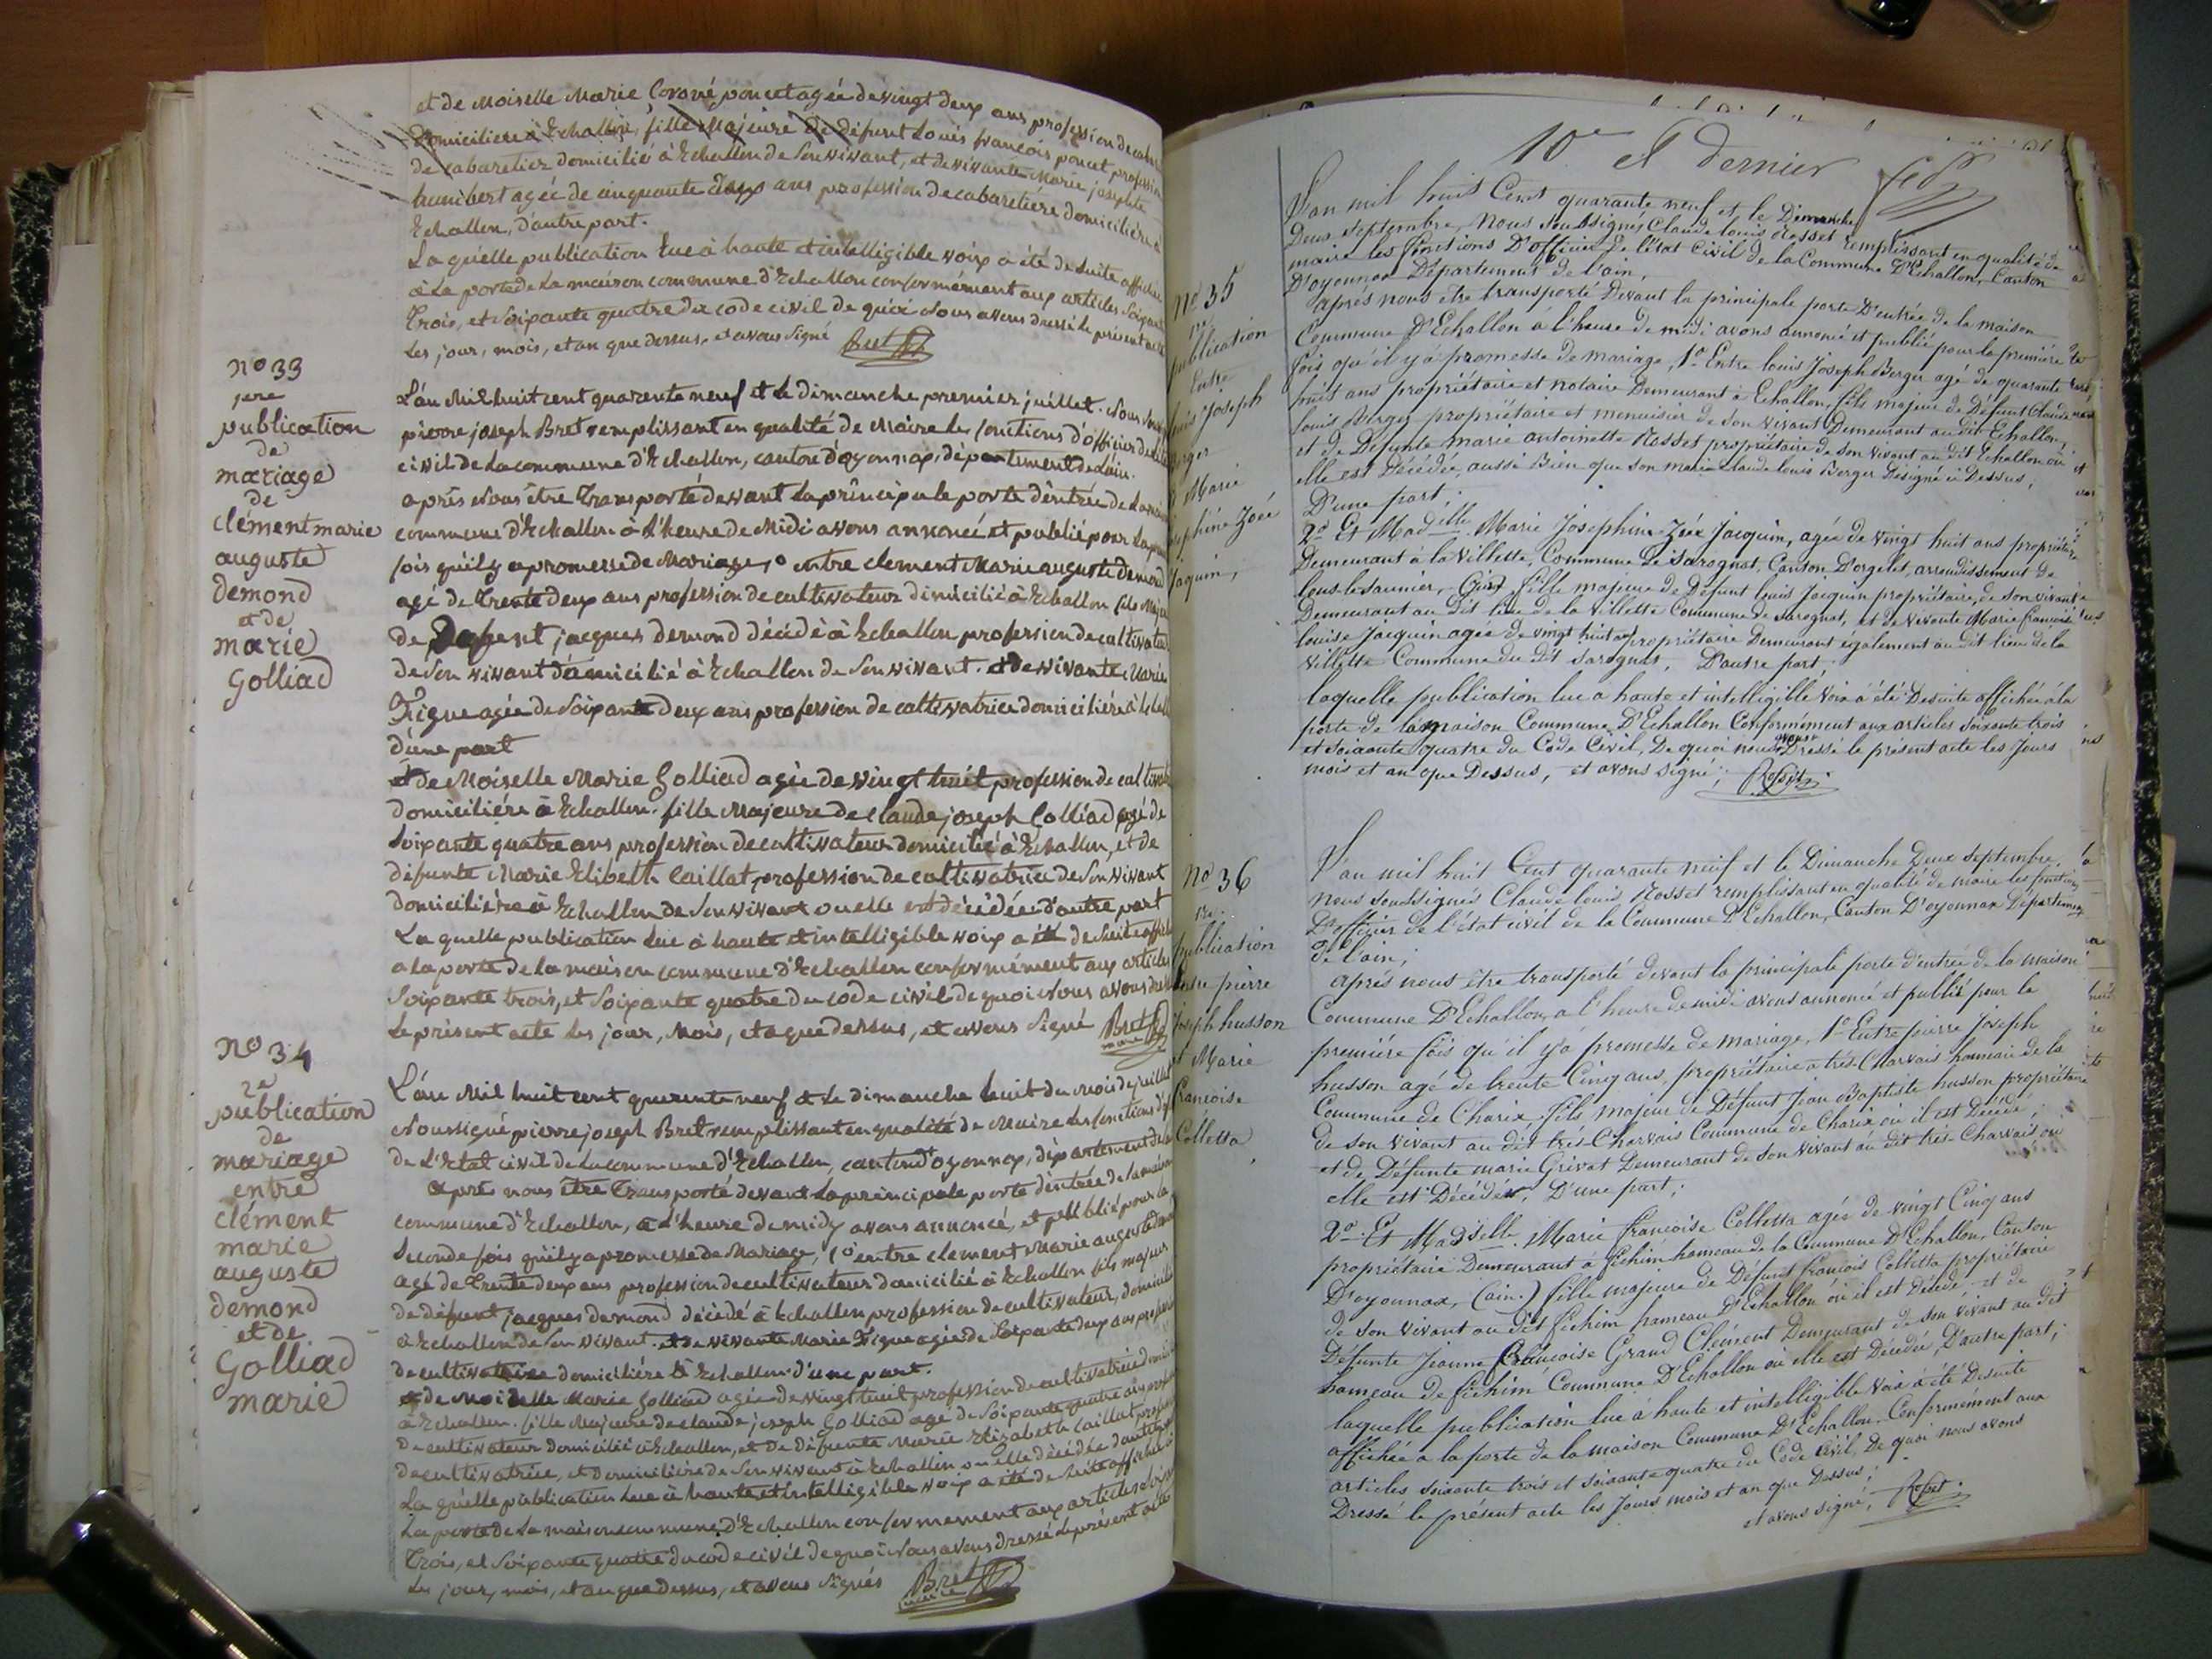 et de Moiselle Marie Coronné poncet agée de vingt deux ans profession de
domiciliere à Echallon, fille Majeure de défunt Louis françois poncet, profession
de cabaretier domicilié à Echallon de Son vivant, et de vivante Marie josephte
humbert agée de cinquante ans profession de cabaretiére domiciliére à
Echallon, d'autre part.
La quelle publication lue à haute et intelligible voix a été de Suite affichée
à La porte de La maison commune d'Echallon conformément aux articles Soixante
Trois, et Soixante quatre du code civil de quoi Nous avons dressé le présent acte
Les jour, mois, et an que dessus, et avons Signé Bret
N° 33
1ere
publication
de
mariage
de
clément marie
auguste
demond
et de
marie
Golliad
L'an Mil huit cent quarente neuf et le dimanche premier juillet. Nous
pierre joseph Bret remplissant en qualité de Maire les fonctions d'officier de
civil de La commune d'Echallon, canton d'oyonnax, département de L'ain.
après Nous être Transporté devant La principale porte d'entrée de La
commune d'Echallon à L'heure de Midi avons annoncé et publié pour La
fois qu'il y a promesse de Mariage, 1° entre clement Marie auguste demond
agé de Trente deux ans profession de cultivateur domicilié à Echallon fils
de Defunt jacques demond décédé à Echallon profession de cultivateur
de Son vivant domicilié à Echallon de Son vivant. et de vivante Marie
agée de Soixante Deux ans profession de cultivatrice domiciliére à
d'une part
et de Moiselle Marie Golliad agée de vingt huit profession de
domiciliére à Echallon. fille Majeure de claude joseph Golliad agé de
Soixante quatre ans profession de cultivateur domicilié à Echallon, et de
défunte Marie Elibeth Caillat, profession de cultivatrice de Son vivant
domiciliére à Echallon de Son vivant ou elle est décédée d'autre part
La quelle publication Lue à haute et intelligible voix a été de Suite
a La porte de La maison commune d'Echallon conformément aux articles
Soixante trois, et Soixante quatre du code civil de quoi Nous avons
Le présent acte Les jour, Mois, et a que dessus, et avons Signé Bret
maire
N° 34
2e
publication
de
mariage
entre
clément
marie
auguste
demond
et de
Golliad
marie
L'an Mil huit cent quarente neuf et Le dimanche huit du Mois de juillet
Noussigné pierre joseph Bret remplissant en qualité de Maire Les fonctions
de L'Etat civil de La commune d'Echallon, canton d'oyonnax, département de
après nous être Transporté devant La principale porte d'entrée de La maison
commune d'Echallon, à L'heure de midy avons annoncé, et publié pour La
Seconde fois qu'il y a promesse de Mariage, 1° entre clement Marie auguste
agé de Trente deux ans profession de cultivateur domicilié à Echallon fils majeur
de défunt jacques demond décédé à Echallon profession de cultivateur,
à Echallon de Son vivant. et de vivante Marie agée de Soixante deux ans
de cultivatrice domiciliére à Echallon d'une part.
et de Moiselle Marie Golliad agée de vingt huit profession de cultivatrice
à Echallon. fille Majeure de claude joseph Golliad agé de Soixante quatre ans
de cultivateur domicilié à Echallon, et De défunte Marie Elizabeth Caillat
de cultivatrice, et domiciliére de Son vivant à Echallon ou elle décédée
La quelle publication Lue à haute et intelligible voix a été de Suite
La porte de La maison commune d'Echallon conformément aux articles
Trois, et Soixante quatre du code civil de quoi Nous avons dressé Le présent acte
Les jour, mois, et an que dessus, et avons Signés Bret
maire
10e et dernier
L'an mil huit Cent quarante neuf et le Dimanche
Deux Septembre, Nous Soussigné Claude louis Rosset remplissant en qualité de
maire les fonctions D'officier De l'état Civil de la Commune D'Echallon, Canton
D'oyonnax Département de l'ain,
après nous être transporté Devant la principale porte D'entrée de la maison
Commune D'Echallon à l'heure de midi avons annoncé et publié pour la première
fois qu'il y'a promesse de mariage, 1° Entre louis Joseph Berger agé de quarante
huit ans propriétaire et notaire Demeurant à Echallon, fils majeur de Défunt Claude
louis Berger propriétaire et menuisier de Son vivant Demeurant au dit Echallon,
et de Défunte marie antoinette Rosset propriétaire de son vivant au dit Echallon où
elle est Décédée, aussi Bien que son mari Claude louis Berger Désigné ci Dessus,
D'une part;
2° Et Madelle Marie Josephine Zoéé Jacquin, agée de vingt huit ans propriétaire
Demeurant à la Villette, Commune De Sarognat, Canton D'orgelet, arrondissement de
lons-le-Saunier, fille majeure de Défunt louis Jacquin propriétaire, de son vivant
Demeurant au dit lieu de la Villette Commune de Sarognat, et de vivante Marie francoise
louise Jacquin agée de vingt huit ans propriétaire Demeurant également au dit lieu de la
Villette Commune du dit Sarognat, D'autre part.
laquelle publication lue a haute et intelligible Voix à été Desuite affichée à la
porte de la maison Commune D'Echallon Conformément aux articles Soixante trois
et soixante quatre du Code Civil, De quoi nous avons Dressé le présent acte les Jours
mois et an que Dessus, et avons signé; Rosset
N° 35
1re
publication
Entre
louis Joseph
Berger
et Marie
Josephine Zoéé
Jaquin,
N° 36
1re
publication
Entre pierre
Joseph husson
et Marie
francoise
Colletta,
L'an mil huit Cent quarante neuf et le Dimanche Deux Septembre,
nous soussignés Claude louis Rosset remplissant en qualité de maire les fonctions
D'officier de l'état civil de la Commune D'Echallon, Canton D'oyonnax Département
de l'ain,
après nous être transporté devant la principale porte d'entrée de la maison
Commune D'Echallon, a l'heure de midi avons annoncé et publié pour la
première fois qu'il y'a promesse de mariage, 1° Entre pierre Joseph
husson agé de trente Cinq ans, propriétaire a très-Charvais hameau de la
Commune de Charix, fils majeur de Défunt Jean Baptiste husson propriétaire
de son vivant au dit très-Charvais Commune de Charix où il est Décédé,
et de Défunte marie Grivat Demeurant de son vivant au dit très-Charvais où
elle est Décédée, D'une part;
2° Et Madselle Marie francoise Colletta agée de vingt Cinq ans
propriétaire Demeurant à fichim hameau de la Commune D'Echallon, Canton
D'oyonnax, (ain.) fille majeure de Défunt francois Colletta propriétaire
de son vivant au dit fichim hameau D'Echallon où il est Décédé, et de
Défunte Jeanne françoise Grand Clément Demeurant de son vivant au dit
hameau de fichim Commune D'Echallon où elle est Décédée, D'autre part;
laquelle publication lue à haute et intelligible Voix à été Desuite
affichée a la porte de la maison Commune D'Echallon Conformément aux
articles soixante trois et soixante quatre du Code Civil, De quoi nous avons
Dressé le présent acte les Jours mois et an que Dessus;
et avons signé, Rosset